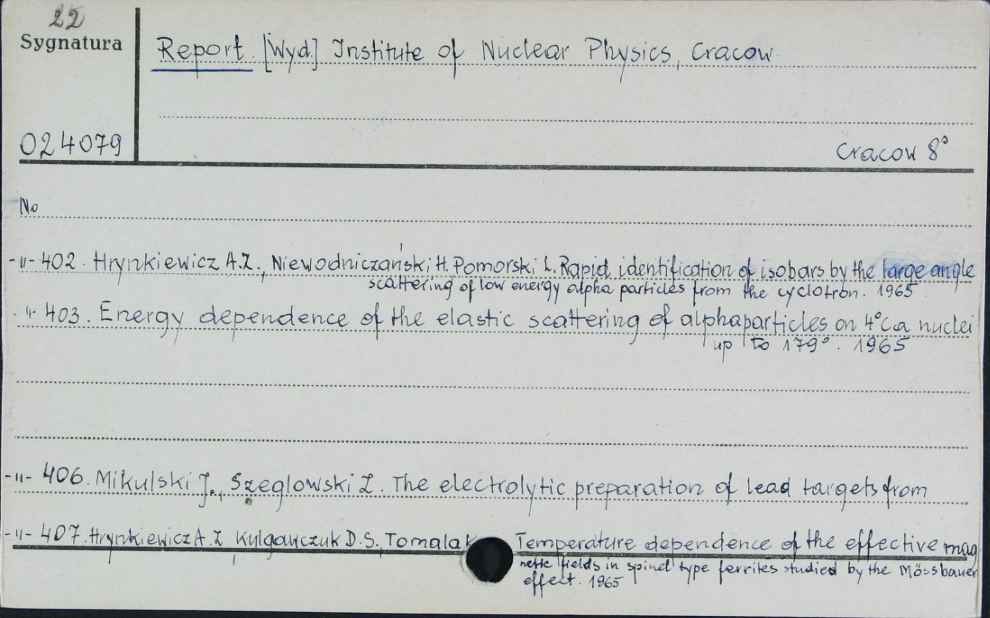 22
Sygnatura
Report [Wyd.] Institute of Nuclear Physics, Cracow
024079
Cracow 8°
No
-"- 402. Hrynkiewicz A.Z., Niewodniczański H. Pomorski L. Rapid identification of isobars by the large angle
scattering of low energy alpha particles from the cyclotron. 1965
-"- 403. Energy dependence of the elastic scattering of alphaparticles on 4°Ca nuclei
up to 179°. 1965
-"- 406. Mikulski J., Szeglowski Z. The electrolytic preparation of lead targets from
-"- 407. Hrynkiewicz A.Z, Kulgawczuk D.S, Tomala K Temperature dependence of the effective mag
netic fields in spinel type ferrites studied by the Mössbauer
effect. 1965